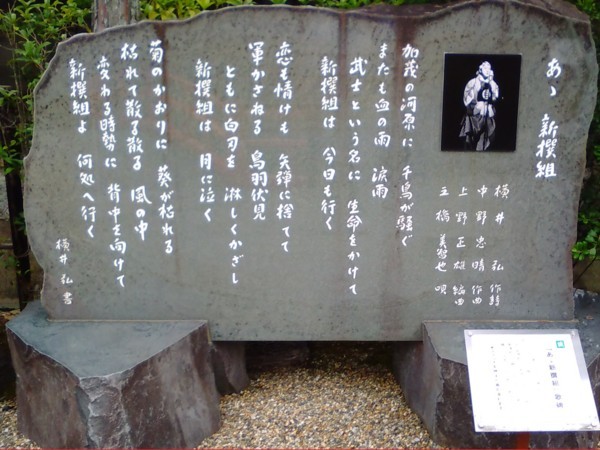 あゝ 新撰組
横井 弘 作詩
中野忠晴 作曲
上野正雄 編曲
三橋美智也 唄
加茂の河原に 千鳥が騒ぐ
またも血の雨 涙雨
武士という名に 生命をかけて
新撰組は 今日も行く
恋も情けも 矢弾に捨てて
軍かさねる 鳥羽伏見
ともに白刃を 淋しくかざし
新撰組は 月に泣く
菊のかおりに 葵が枯れる
枯れて散る散る 風の中
変わる時勢に 背中を向けて
新撰組よ 何処へ行く
横井 弘 書
「あゝ新撰組」歌碑